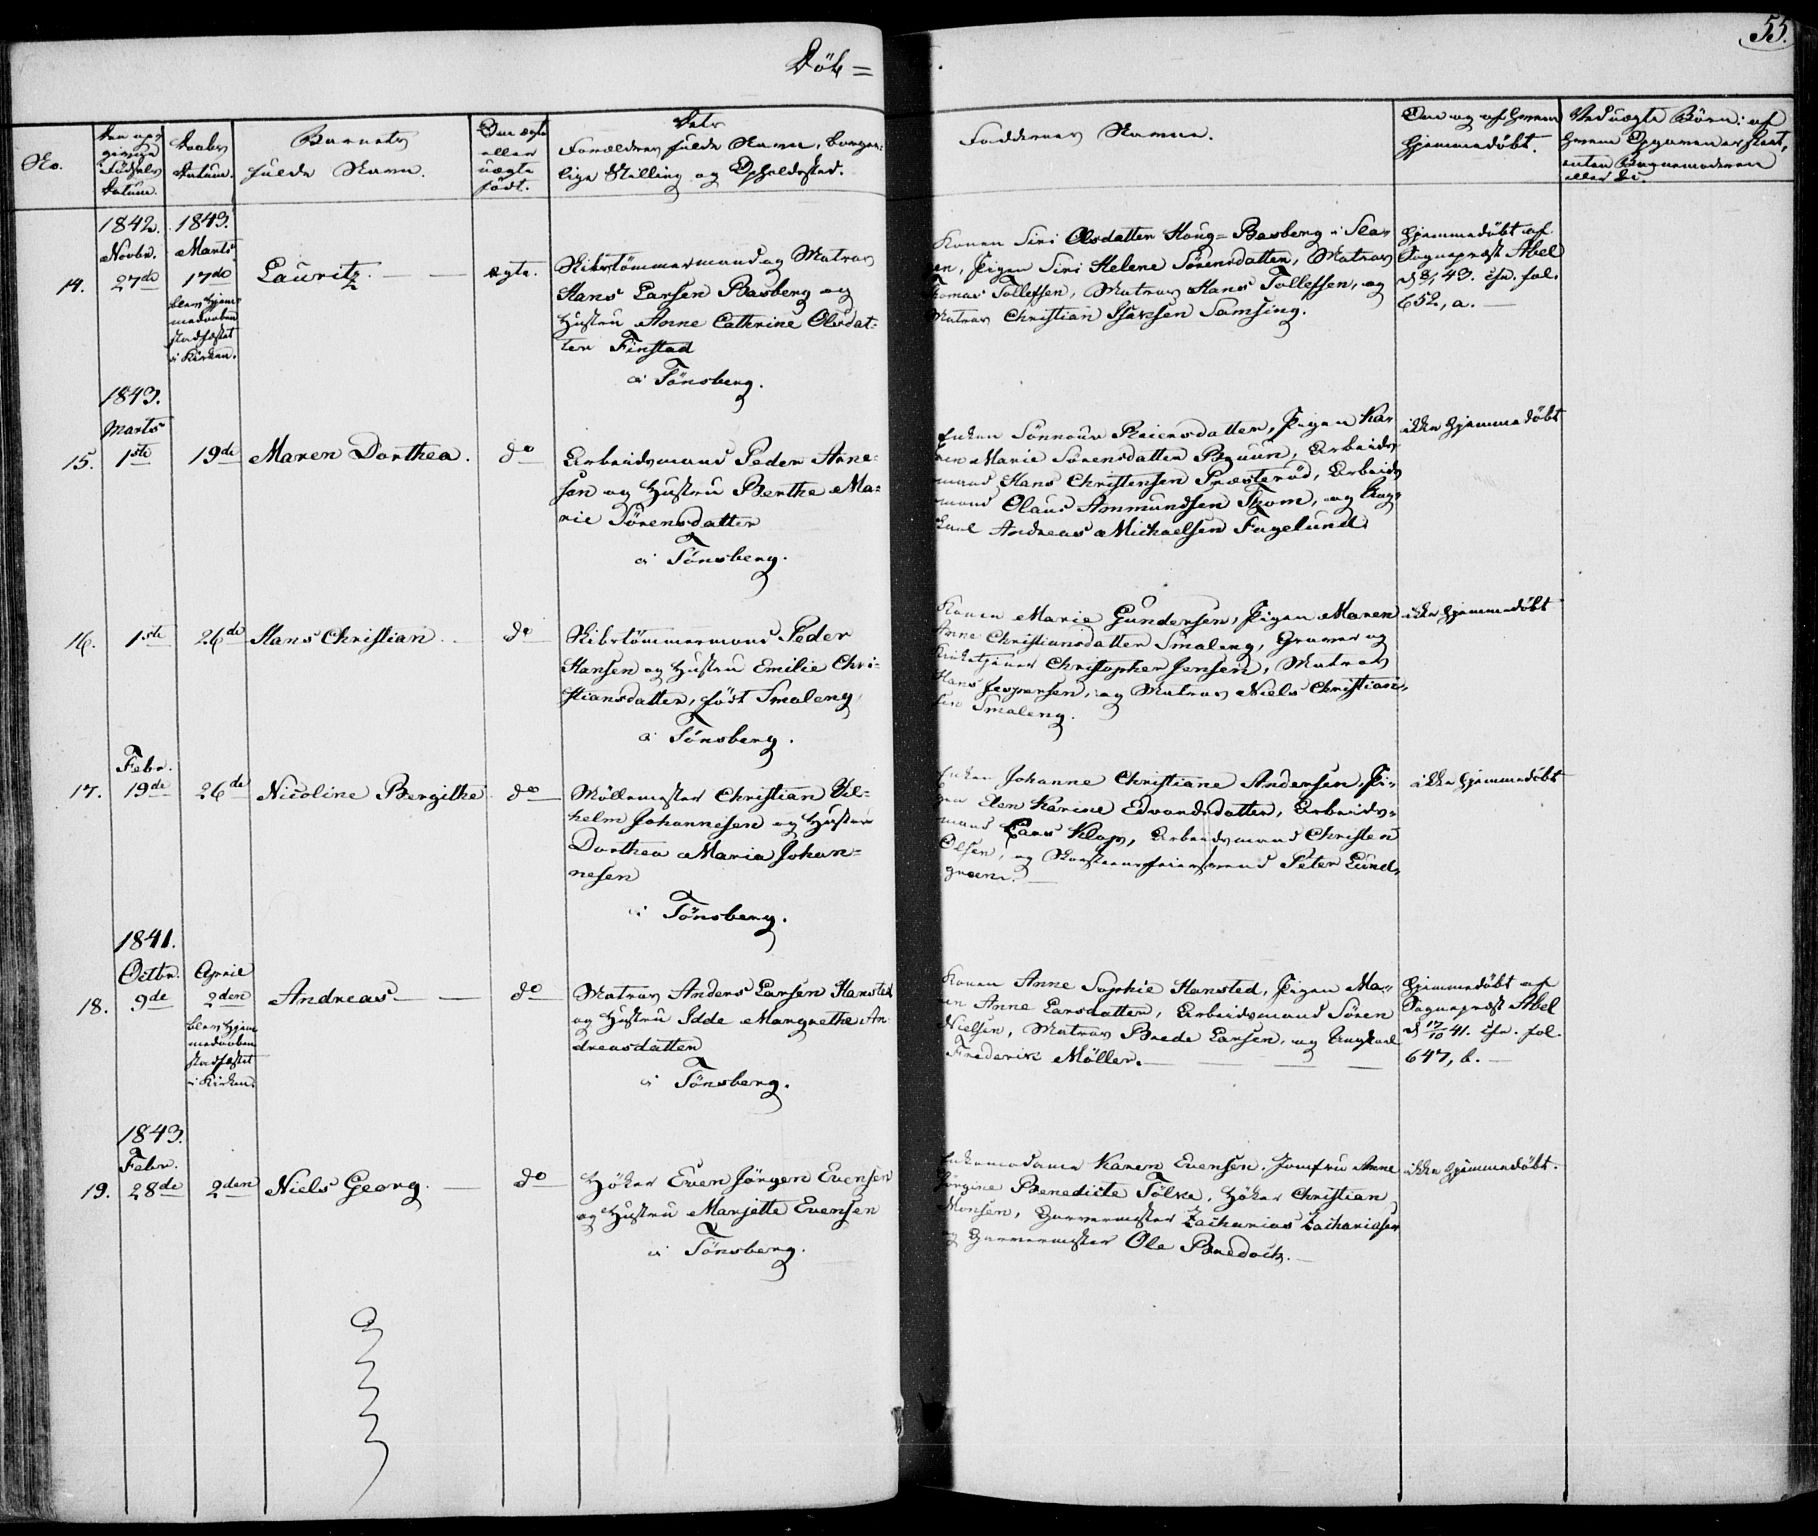 Döb=
55.
No.
Den opgivne Födsels Datum.
Daabs Datum.
Barnets fulde Navn.
Om ægte eller uægte födt.
Dets Forældres fulde Navn, borgerlige Stilling og Opholdssted.
Faddernes Navne.
Om og af hvem hjemmedöbt.
Ved uægte Börn: af hvem Opgaven er skeet, enten Barnemoderen eller &c.
14.
1842.
Novbr.
27de
1843.
Marts
17de
blev hjem-
medaaben
stadfæstet
i Kirken.
Lauritz.
ægte.
Skibstömmermand og Matros
Hans Larsen Basberg og
Hustru Anne Cathrine Olsdat-
ter Finstad
i Tönsberg.
Konen Siri Olsdatter Haug-Basberg i Sla-
gen, Pigen Siri Helene Sörensdatter, Matros
Thomas Tollefsen, Matros Hans Tollefsen, og
Matros Christian Isaksen Samsing.
hjemmedöbt af
Sognepræst Abel
43. cfr. fol.
652, a.
15.
1843.
Marts
1ste
19de
Maren Dorthea.
do
Arbeidsmand Peder Arne-
sen og Hustru Berthe Ma-
rie Sörensdatter
i Tönsberg.
Enken Sönnove Reiersdatter, Pigen Ka-
ren Marie Sörensdatter Bruun, Arbeids-
mand Hans Christensen Præsteröd, Arbeids-
mand Olaus Ammundsen Thom, og Ung-
karl Andreas Michaelsen Fagelund.
ikke hjemmedöbt
16.
1ste
26de
Hans Christian.
do
Skibstömmermand Peder
Hansen og Hustru Emilie Chri-
stiansdatter, födt Smaleng
i Tönsberg.
Konen Marie Gundersen, Pigen Maren
Anne Christiansdatter Smaleng, Graver og
Kirketjener Christopher Jensen, Matros
Hans Jespersen, og Matros Niels Christian-
sen Smaleng.
ikke hjemmedöbt
17.
Febr.
19de
26de
Nicoline Bergithe
do
Möllemester Christian Vil-
helm Johannesen og Hustru
Dorthea Maria Johan-
nesen
i Tönsberg.
Enken Johanne Christiane Andersen, Pi-
gen Elen Karine Edvardsdatter, Arbeids-
mand Lars Klop, Arbeidsmand Christen
Olsen, og Skorsteensfeiersvend Peter Lund-
green.
ikke hjemmedöbt
18.
1841.
Octbr.
9de
April
2den
blev hjem-
medaaben
stadfæstet
i Kirken.
Andreas
do
Matros Anders Larsen Hansted
og Hustru Idde Margrethe An-
dreasdatter
i Tönsberg.
Konen Anne Sophie Hansted, Pigen Ma-
ren Anne Larsdatter, Arbeidsmand Sören
Nielsen, Matros Brede Larsen, og Ungkarl
Frederik Möller.
hjemmedöbt af
Sognepræst Abel
d 17/10 41. cfr. fol.
647, b.
19.
1843.
Febr.
28de
2den
Niels Georg.
do
Höker Even Jörgen Evensen
og Hustru Marjette Evensen
i Tönsberg.
Enkemadame Karen Evensen, Jomfru Anne
Jörgine Benedicte Fölke, Höker Christian
Monsen, Garvermester Zacharias Zachariasen
og Garvermester Ole Bredoch.
ikke hjemmedöbt.